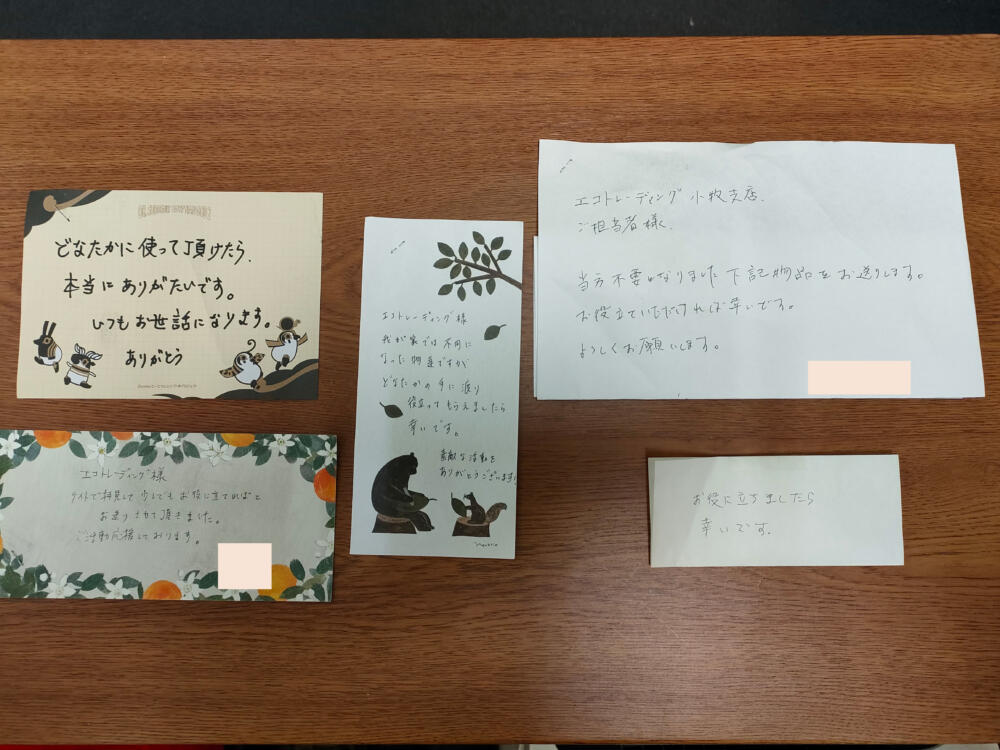 どなたかに使って頂けたら、
本当にありがたいです。
いつもお世話になります。
ありがとう
エコトレーディング様
サイトで拝見して少しでもお役に立てればと
お送りさせて頂きました。
ご活動応援しております。
エコトレーディング様
我が家では不用に
なった物達ですが
どなたかの手に渡り
役立ってもらえましたら
幸いです。
素敵な活動を
ありがとうございます!
エコトレーディング 小牧支店.
ご担当者様.
当方不要になりました下記物品をお送りします。
お役立ていただければ幸いです。
よろしくお願いします。
お役に立ちましたら
幸いです.